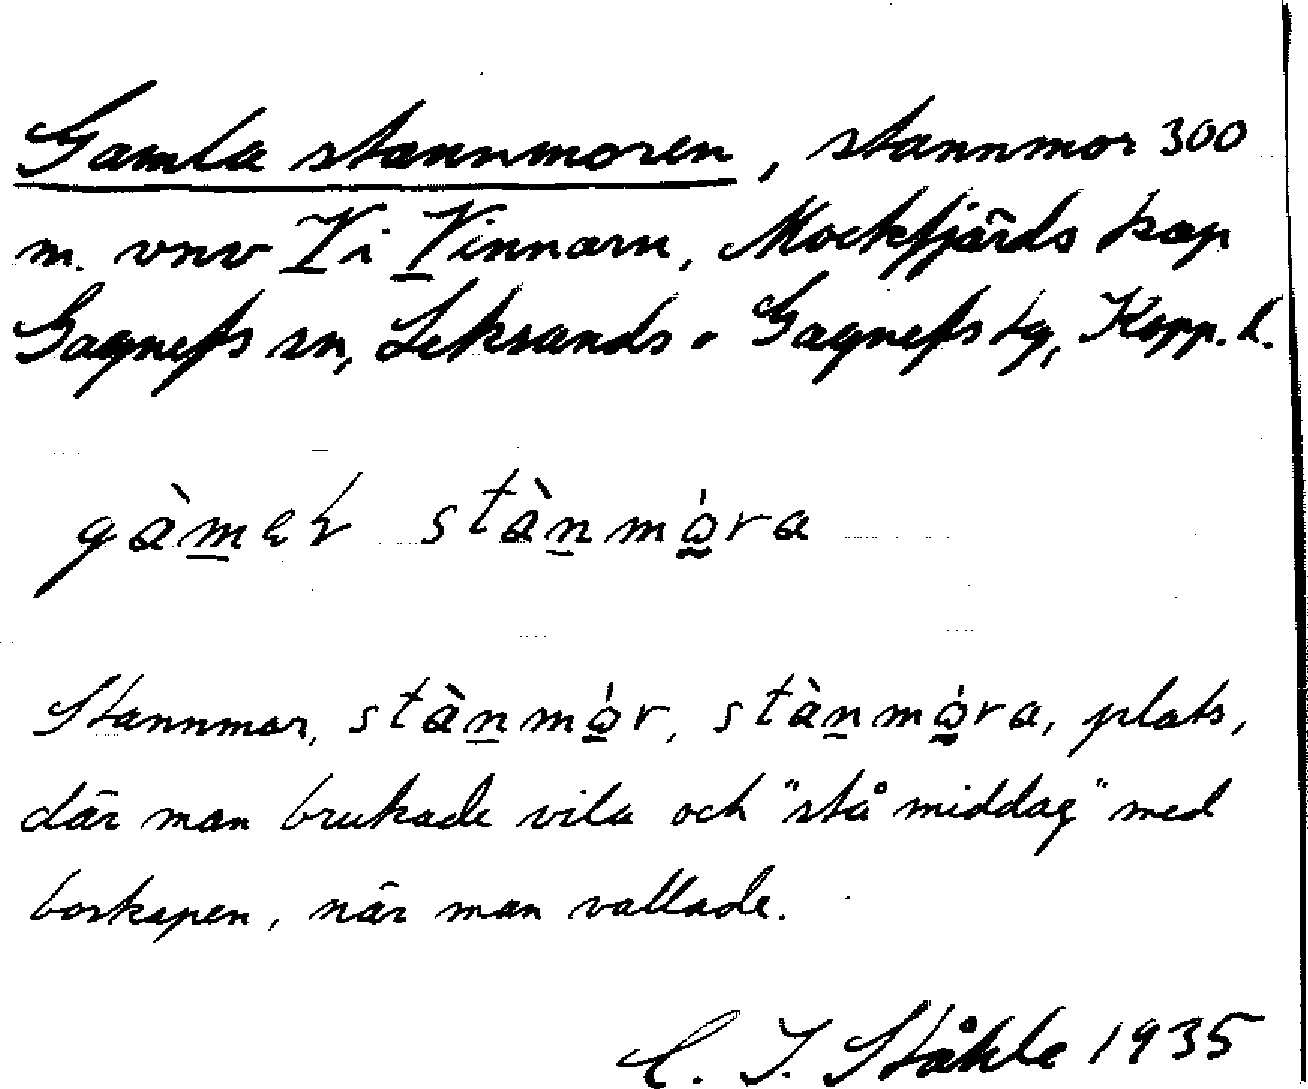 Gamla stannmoren, stannmor 300
m. vnv Vi Vinnarn, Mockfjärds kap
Gagnefs sn, Leksands o Gagnefs tg, Kopp. l.
gàmeł stànmǫ̀ra
Stannmor, stànmǫ̀r, stànmǫ̀ra, plats,
där man brukade vila och "stå middag" med
boskapen, när man vallade.
C. I. Ståhle 1935